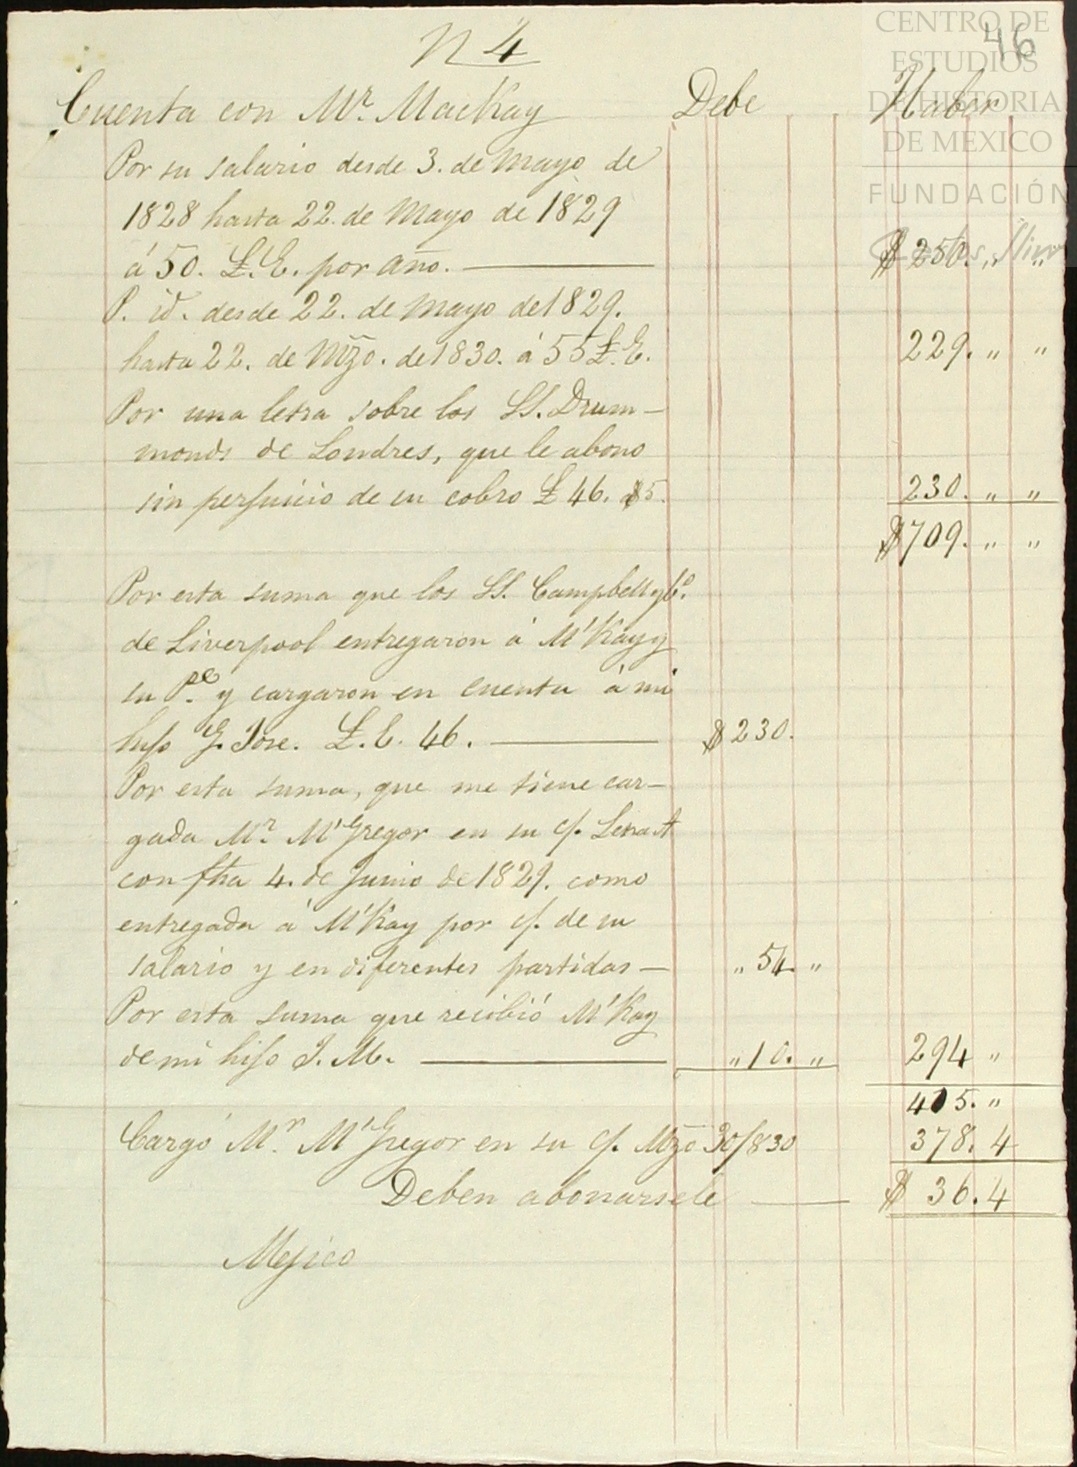 N 4
46
CENTRO DE
ESTUDIOS
DE HISTORIA
DE MEXICO
FUNDACIÓN
Cuenta con Mr. MacKay Debe Haber
Por su salario desde 3. de Mayo de
1828 hasta 22. de Mayo de 1829
á 50. £.E. por año. $ 250. " "
P. id. desde 22. de Mayo de 1829.
hasta 22. de Mzo. de 1830. á 55 £.E. 229. " "
Por una letra sobre los SS. Drum-
monds de Londres, que le abono
sin perjuicio de su cobro £ 46. á 5. 230. " "
$ 709. " "
Por esta suma que los SS. Campbell y Co.
de Liverpool entregaron á M'Kay y
su Pe. y cargaron en cuenta á mi
hijo G. Jose. £.E. 46. $ 230.
Por esta suma, que me tiene car-
gada Mr. M'Gregor en su c/. Letra A
con fha 4. de Junio de 1829. como
entregada á M'Kay por c/. de su
salario y en diferentes partidas - " 54. "
Por esta suma que recibió M'Kay
de mi hijo J. M. " 10. " 294 "
415. "
Cargó Mr. M'Gregor en su c/. Mzo 30/830 378. 4
Deben abonarsele $ 36. 4
Mejico